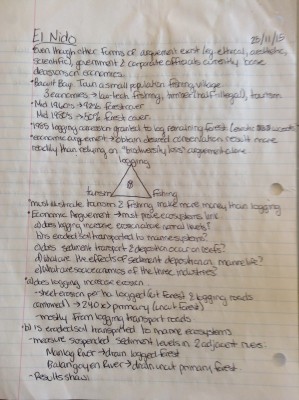 El Nido
25/11/15
• Even though other forms of arguement exist (eg. ethical, aesthetic,
scientific), government & corporate officials currently base
decisions on economics.
• Bacuit Bay: Twin a small population fishing village.
3 economics → low-tech fishing, timber (half illegal), tourism
• Mid 1940s → 92% forest cover
Mid 1980s → 50% forest cover.
• 1985 logging concession granted to log remaining forest
• economic arguement → obtain desired conservation result more
readily than relying on "biodiversity loss" arguement alone.
logging
tourism
fishing
• must illustrate tourism & fishing make more money than logging
• Economic Arguement → must prove ecosystems link
a) does logging increase erosion above normal levels?
b) is eroded soil transported to marine systems?
c) does sediment transport & deposition occur on reefs?
d) what are the effects of sediment deposition on marine life?
e) What are socioeconomics of the three industries?
• a) does logging increase erosion
- sheet erosion per ha logged (cut forest & logging roads
combined) → 240x > primary (uncut forest)
- mostly from logging transport roads
• b) is eroded soil transported to marine ecosystems
- measure suspended sediment levels in 2 adjacent rivers:
Manlag River → drain logged forest
Balangoyan River → drain uncut primary forest
- Results show: